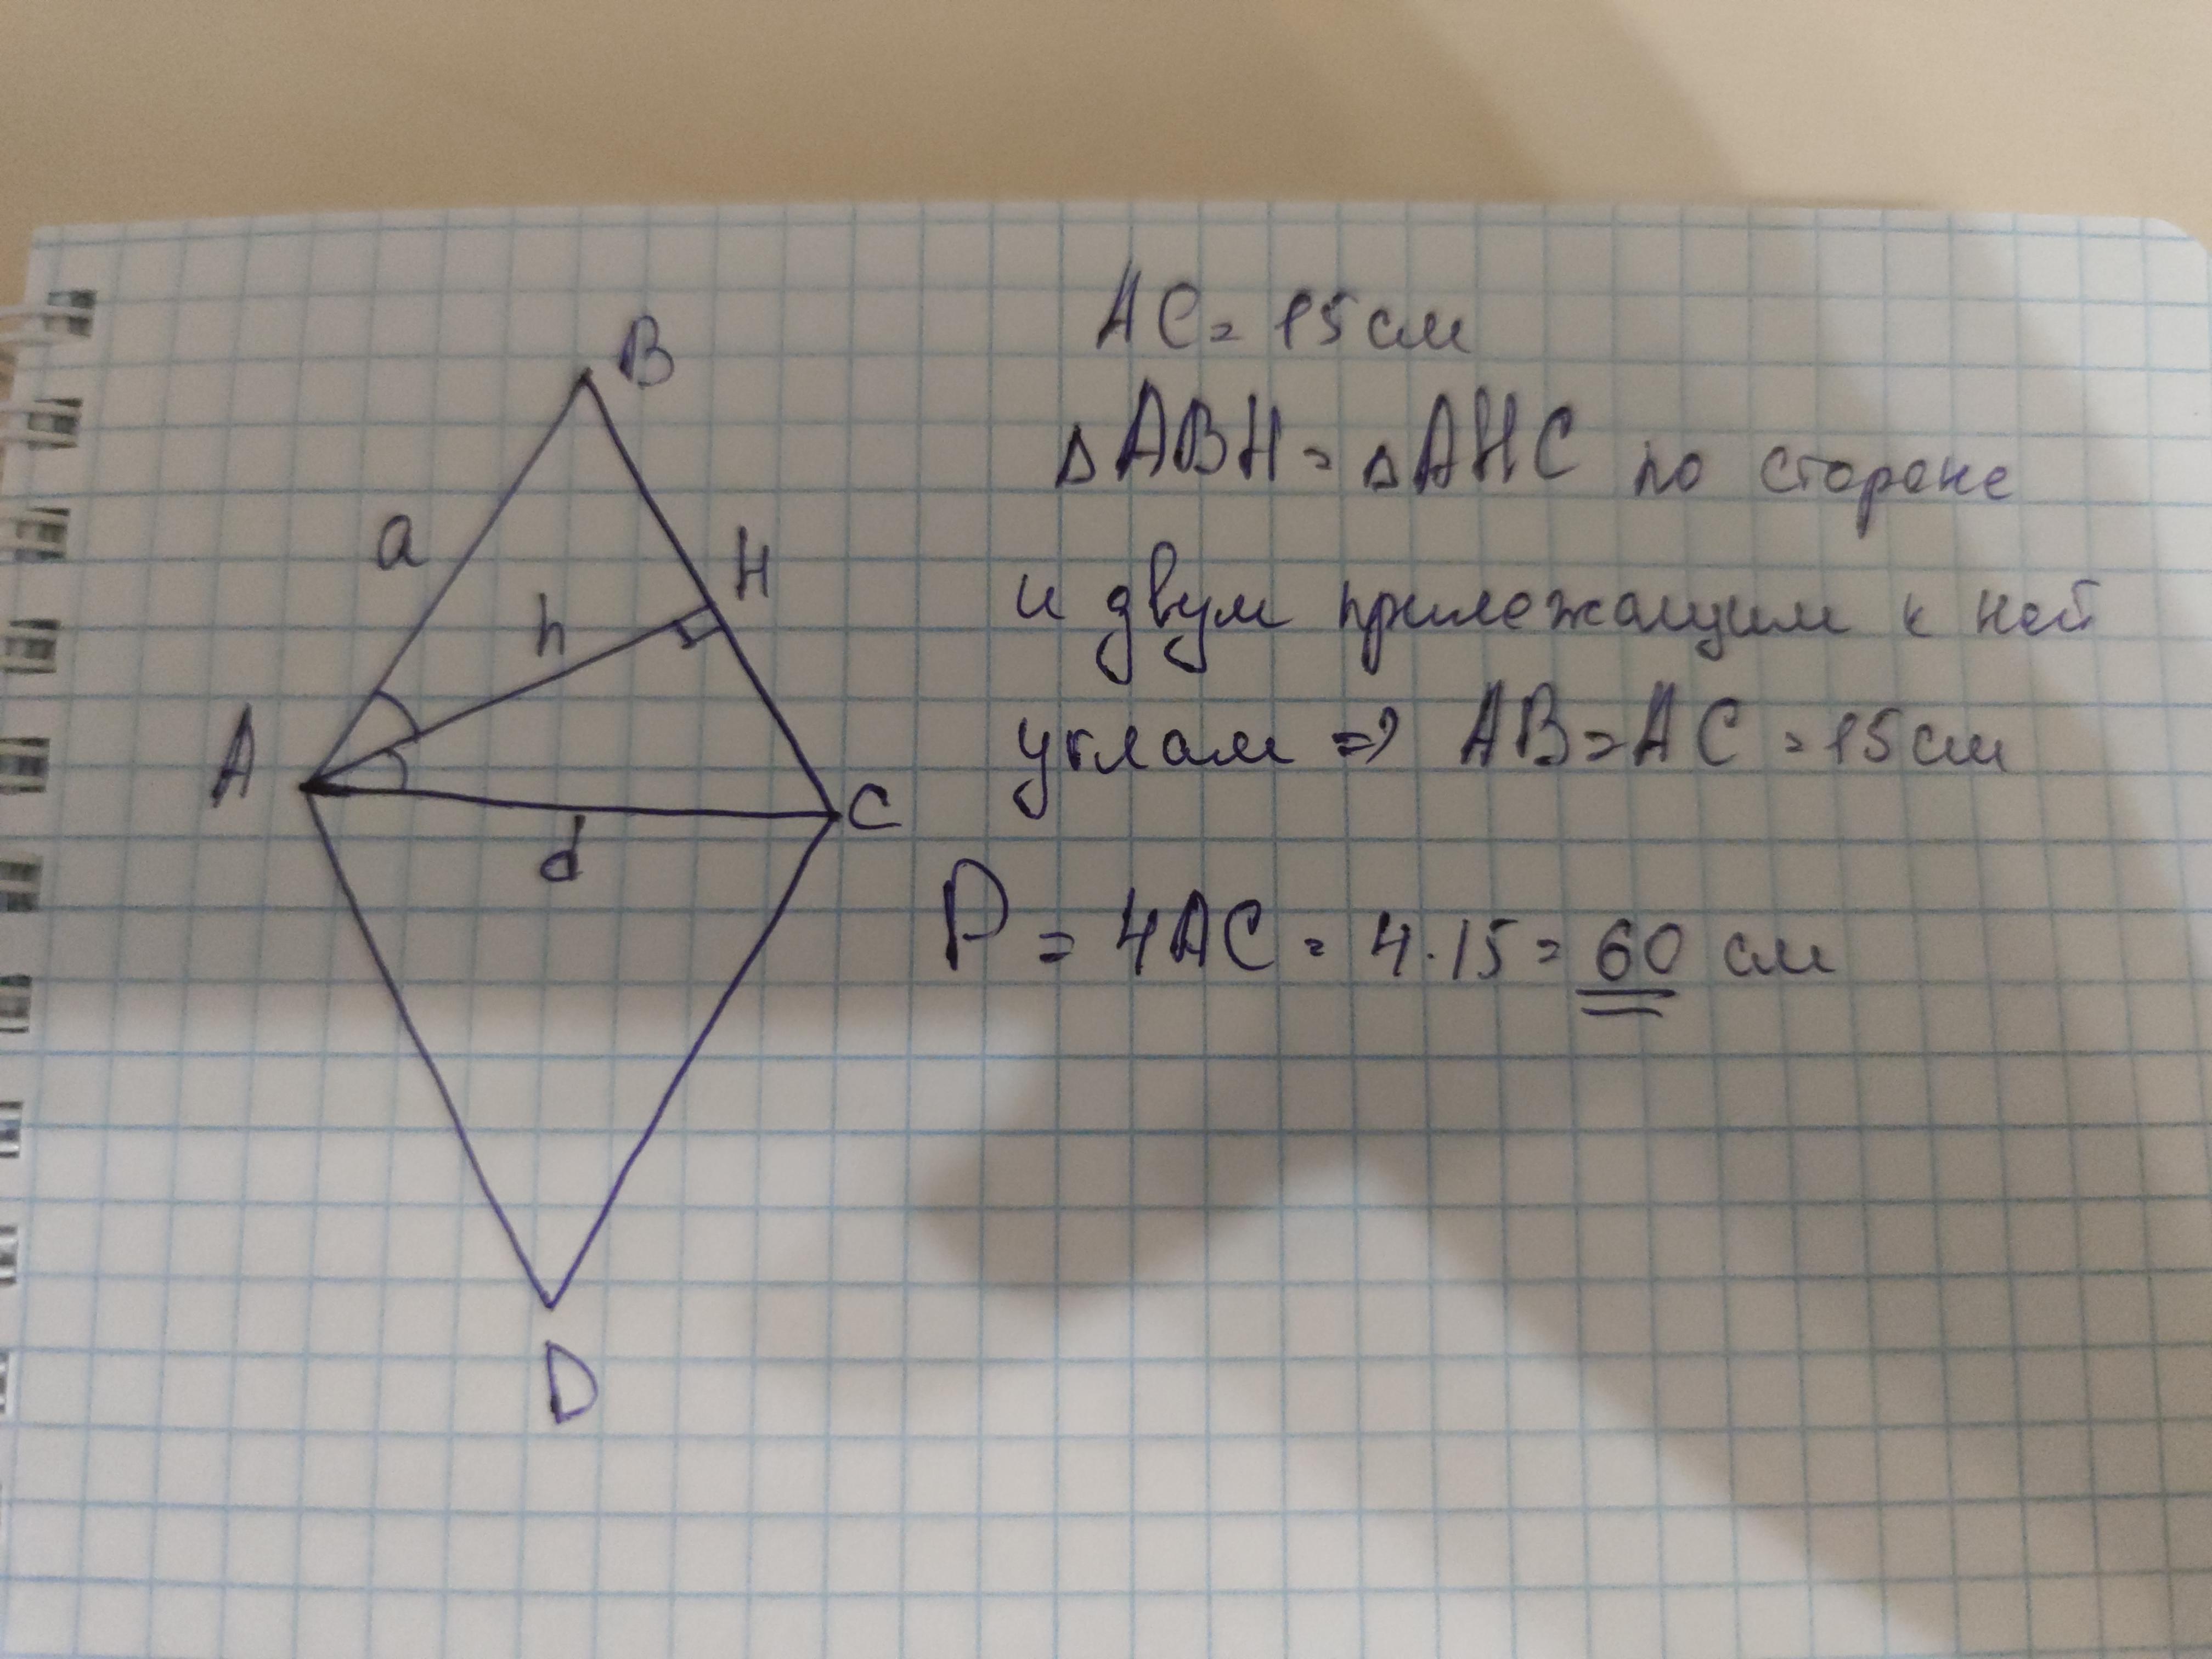 B
a
H
h
A
C
d
D
AC = 15 см
△ABH = △AHC по стороне
и двум прилежащим к ней
углам => AB = AC = 15 см
P = 4AC = 4·15 = 60 см